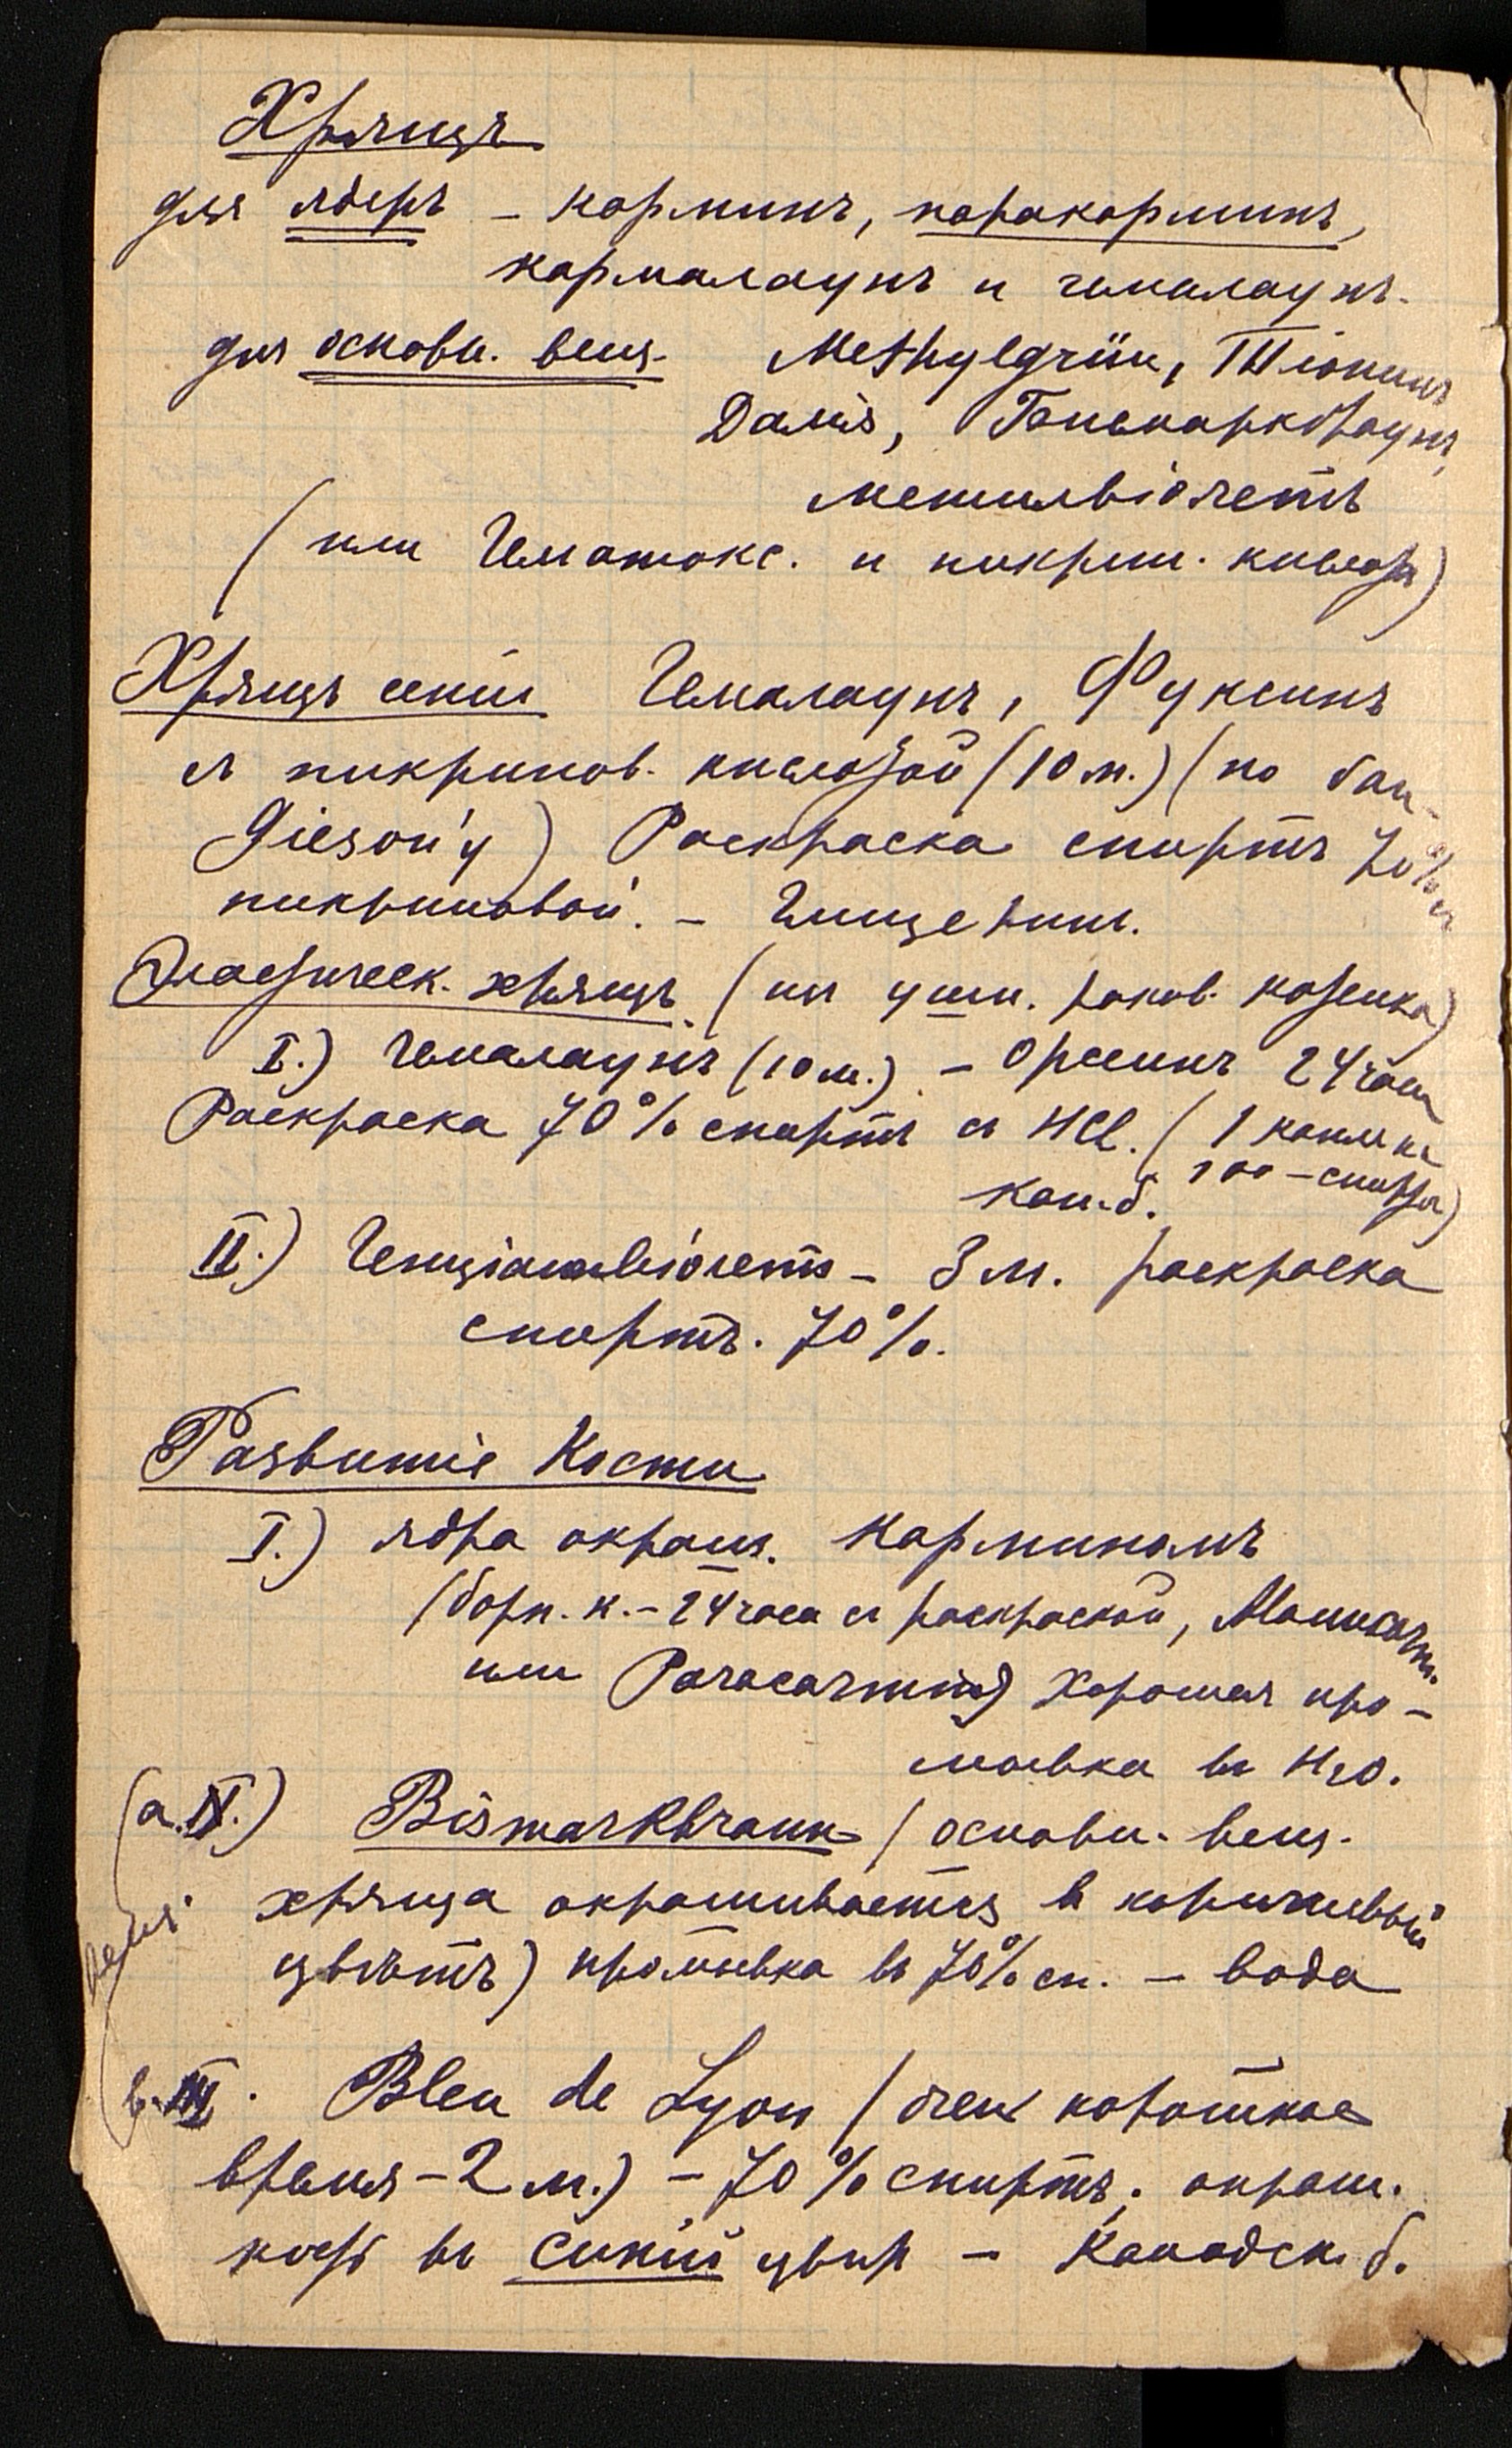 Хрящъ
для ядеръ – карминъ, паракарминъ,
кармалаунъ и гемалаунъ.
для основн. вещ. Methylgrün, Тіонинъ
Далія, Бисмаркбраунъ,
метилвіолетъ
(или Гематокс. и пикрин. кислота)
Хрящъ Гемалаунъ, Фуксинъ
съ пикринов. кислотой (10 м.) (по Van-
Gieson'у) Раскраска спиртъ 70% и
пикриновой. – Глицерин.
Эластическ. хрящъ (из ушн. раков. котенка)
I.) Гемалаунъ (10 м.) – Орсеинъ 24 часа
Раскраска 70% спиртъ съ HCl. (1 капля на
100 – спирта)
кан. б.
II.) Генціанвіолетъ – 3 м. раскраска
спиртъ. 70%.
Развитіе Кости
I.) ядра окраш. Карминомъ
(борн. к. – 24 часа съ раскраской,
или Paracarmin) Хорошая про-
мывка въ H2O.
(a. II.) Bismarkbraun (основн. вещ.
хряща окрашивается в коричневый
цвѣтъ) промывка въ 70% сп. – вода
b. III. Bleu de Lyon (очен короткое
время – 2 м.) – 70% спиртъ. окраш.
кость въ синій цвѣтъ – Канадск. б.